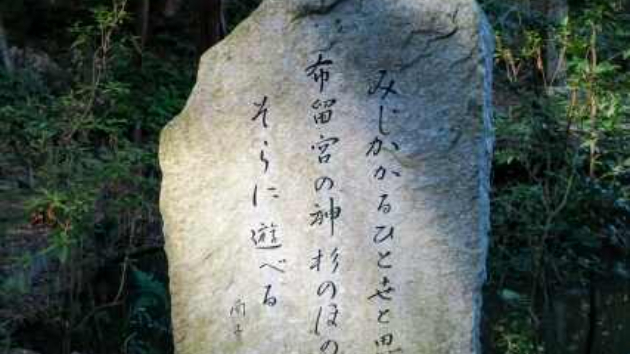 みじかかるひと世と思
布留宮の神杉のほの
そらに遊べる